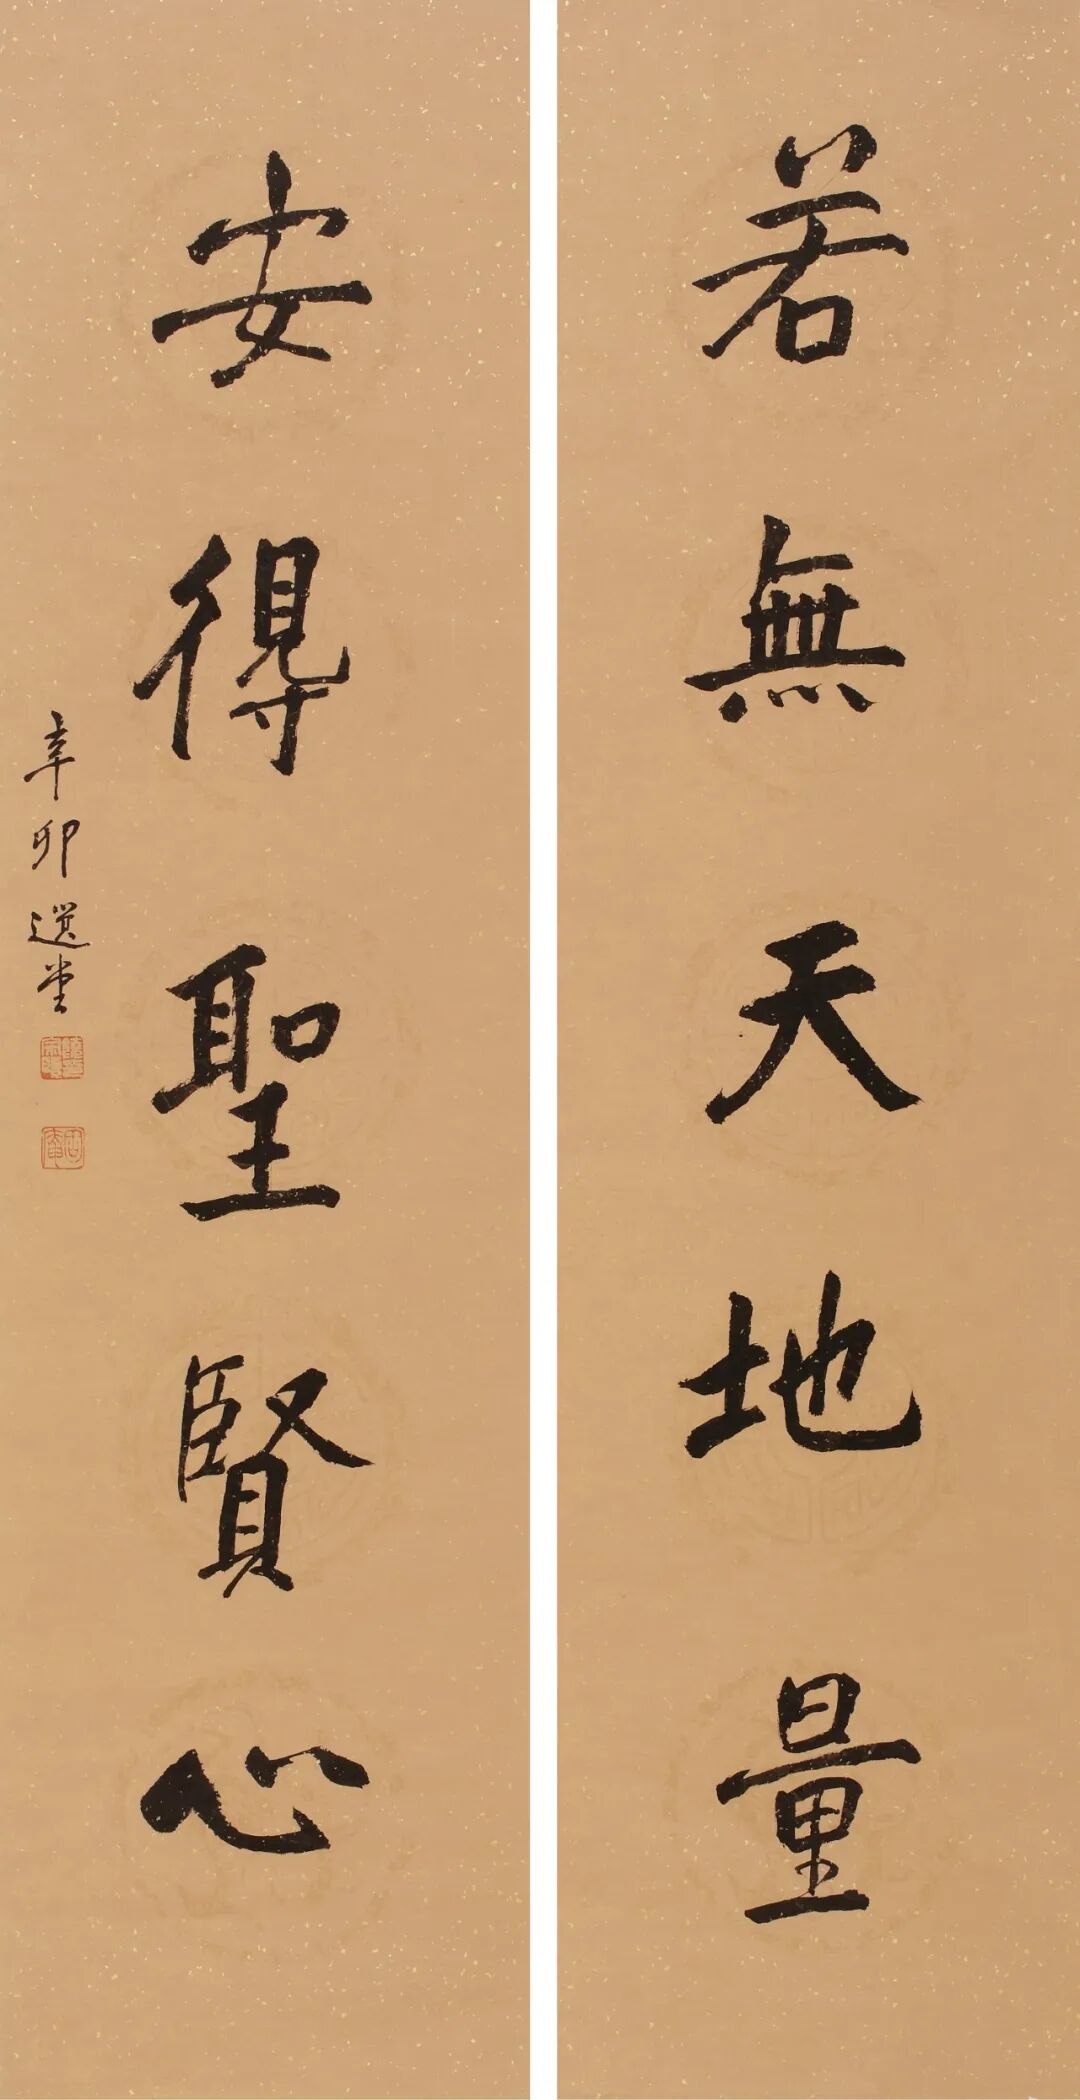 若無天地量
安得聖賢心
辛卯選堂